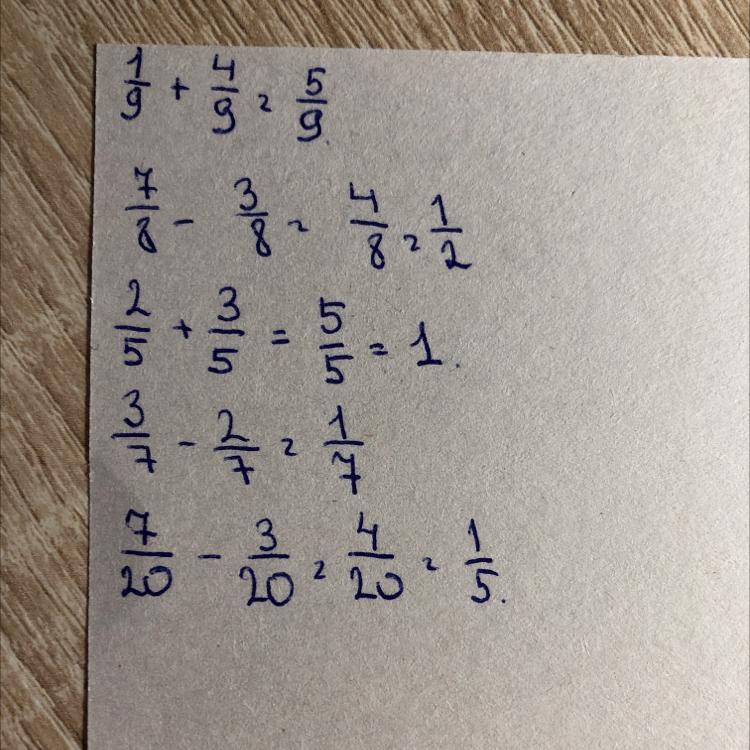 1/9 + 4/9 = 5/9.
7/8 - 3/8 = 4/8 = 1/2
2/5 + 3/5 = 5/5 = 1.
3/7 - 2/7 = 1/7
7/20 - 3/20 = 4/20 = 1/5.